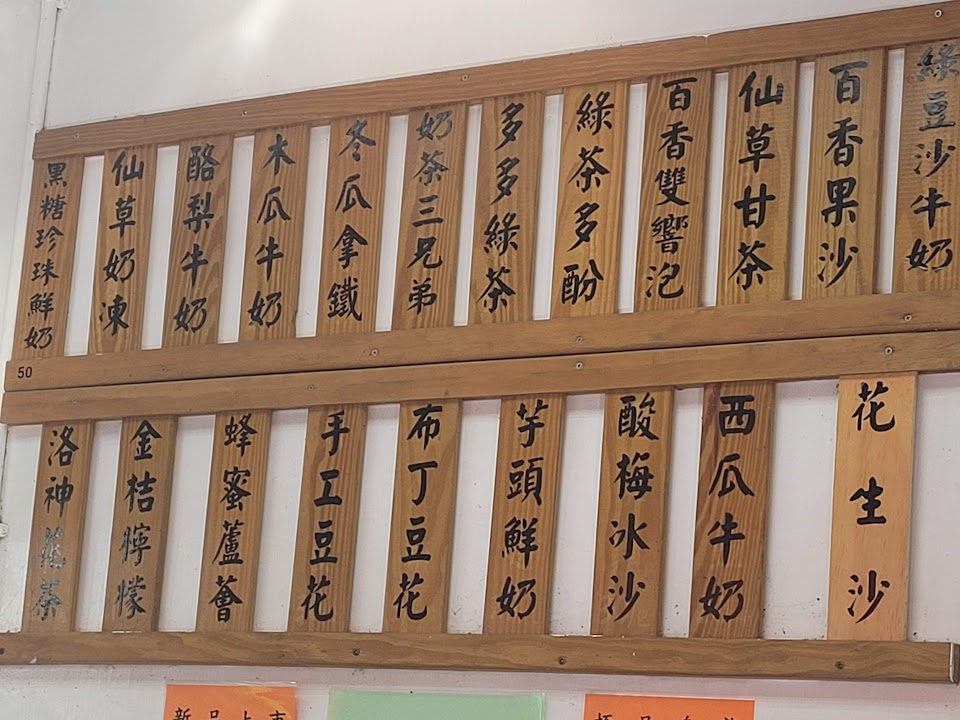 綠豆沙牛奶
百香果沙
仙草甘茶
百香雙響泡
綠茶多酚
多多綠茶
奶茶三兄弟
冬瓜拿鐵
木瓜牛奶
酪梨牛奶
仙草奶凍
黑糖珍珠鮮奶
50
花生沙
西瓜牛奶
酸梅冰沙
芋頭鮮奶
布丁豆花
手工豆花
蜂蜜蘆薈
金桔檸檬
洛神花茶
新品上市